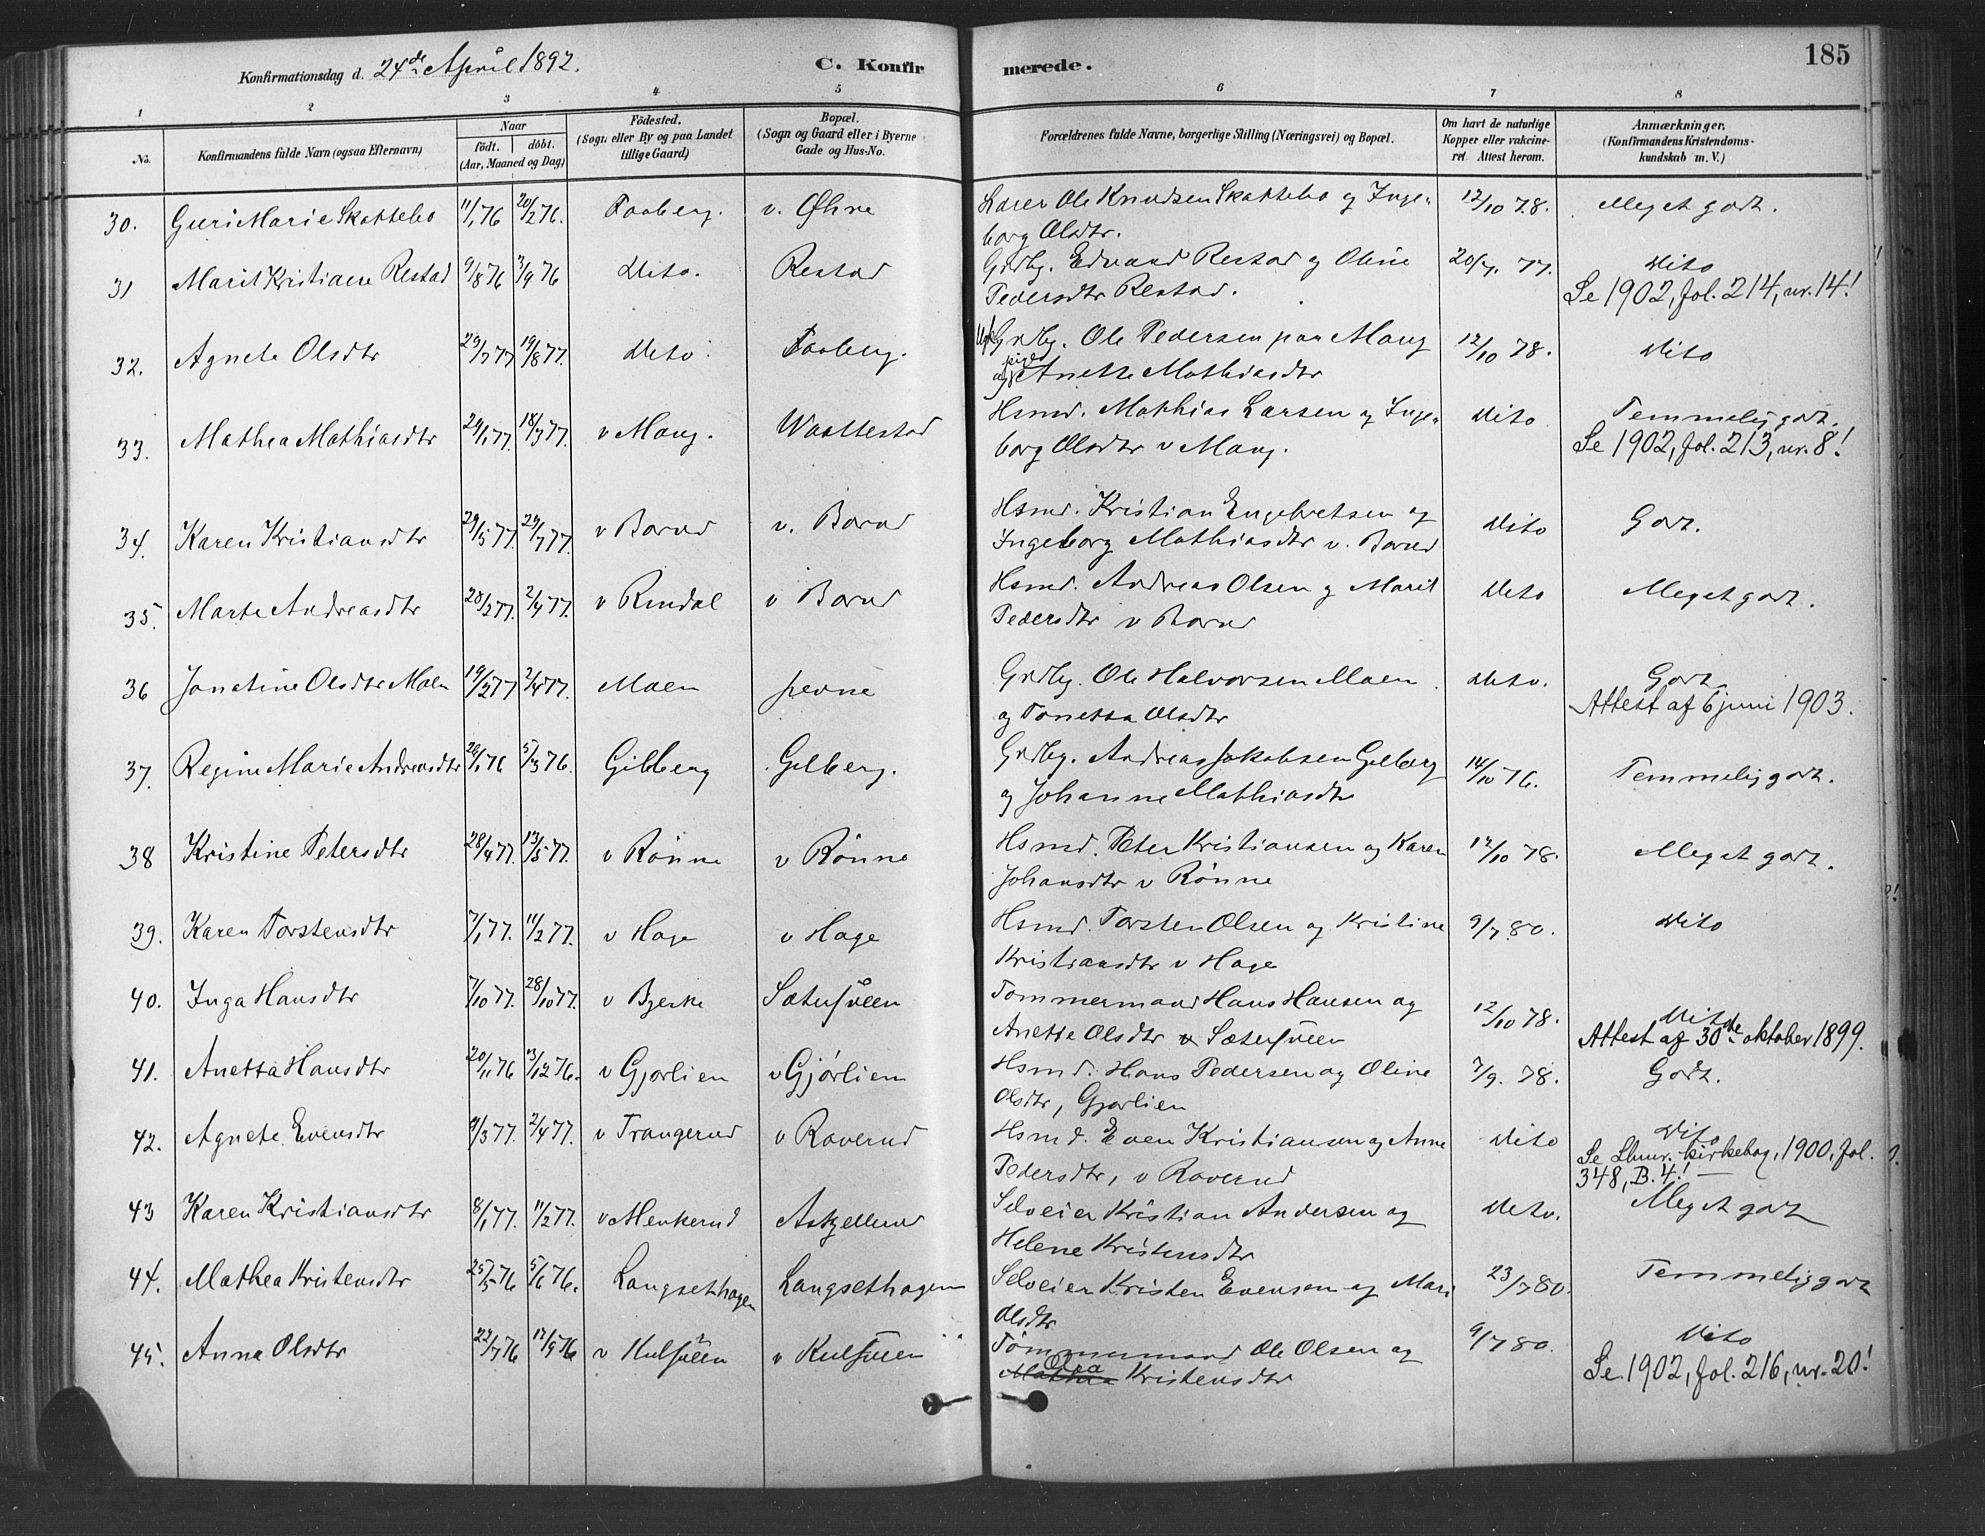 Konfirmationsdag d. 24de April 1892. C. Konfirmerede. 185
1 2 3 4 5 6 7 8
No. Konfirmandens fulde Navn (ogsaa Efternavn) Naar födt. döbt. (Aar, Maaned og Dag) Födested. (Sogn eller By og paa Landet tillige Gaard) Bopæl. (Sogn og Gaard eller i Byerne Gade og Hus-No. Forældrenes fulde Navne, borgerlige Stilling (Næringsvei) og Bopæl. Om havt de naturlige Kopper eller vakcineret. Attest herom. Anmærkninger. (Konfirmandens Kristendomskundskab m. V.)
30. Guri Marie Skattebo 11/1 76 20/2 76. Faaberg. v. Øhne Lærer Ole Knudsen Skattebo og Inge- 12/10 78. Meget godt.
borg Olsdtr.
31 Marit Kristiane Restad 9/8 76 3/9 76 Dito. Restad Grdbr. Edvard Restad og Oline 20/7. 77. Dito
Pedersdtr Restad. Se 1902, fol. 214, nr. 14!
32. Agnete Olsdtr 29/7 77 19/8 77. Dito. Faaberg. Ugk. Grdbr. Ole Pedersen paa Maug 12/10 78. Dito
og pige Anette Mathiasdtr
33. Mathea Mathiasdtr 29/1 77. 18/3 77. v Maug. Waattestad Hsmd. Mathias Larsen og Inge- Dito Temmelig godt.
borg Olsdtr v Maug. Se 1902, fol. 213, nr. 8!
34. Karen Kristiansdtr 29/5 77. 29/7 77. v Borud v. Borud Hsmd. Kristian Engebretsen og Dito Godt.
Ingeborg Mathiasdtr v. Borud
35. Marte Andreasdtr 28/2 77. 2/4 77. v Rindal v Borud Hsmd. Andreas Olsen og Marit Dito Meget godt.
Pedersdtr v Borud
36 Jonetine Olsdtr Moen 19/2 77 2/4 77. Moen Grdbr. Ole Halvorsen Moen Dito. Godt.
og Tonetta Olsdtr Attest af 6 juni 1903.
37. Regine Marie Andreasdtr 26/1 76 5/3 76. Gilberg Gilberg. Grdbr. Andreas Jakobsen Gilberg 14/10 76. Temmelig godt.
og Johanne Mathiasdtr
38 Kristine Petersdtr 28/4 77. 13/5 77. v Rønne v Rønne Hsmd. Peter Kristiansen og Karen 12/10 78. Meget godt.
Johansdtr v Rønne
39. Karen Torstensdtr 7/1 77. 11/2 77. v Hage v Hage Hsmd. Torsten Olsen og Kristine 9/7 80. Dito
Kristiansdtr v Hage
40. Inga Hansdtr 7/10 77. 28/10 77. v Bjerke Sætersveen Tømmermand Hans Hansen og 12/10 78. Dito
Anette Olsdtr v Sætersveen Attest af 30de oktober 1899.
41. Anetta Hansdtr 20/11 76 13/12 76. v Gjørlien v Gjørlien Hsmd. Hans Pedersen og Oline 7/9. 78. Godt.
Olsdtr, Gjørlien
42. Agnete Evensdtr 9/3 77. 2/4 77. v Trangerud v Roverud Hsmd. Even Kristiansen og Anne Dito Dito
Pedersdtr, v Roverud Se Lhmr. kirkebog, 1900, fol. 348, B. 4!
43 Karen Kristiansdtr 8/1 77. 11/2 77. v Menkerud Askjellerud Selveier Kristian Andersen og Dito. Meget godt
Helene Kristensdtr
44. Mathea Kristensdtr 25/5 76 5/6 76. Langsethagen Langsethagen Selveier Kristen Evensen og Mari 23/7 80. Temmelig godt
Olsdtr
45. Anna Olsdtr 22/7 76 17/9 76 v Hulsveen v Kulsveen Tømmermand Ole Olsen og 9/7 80. Dito
Olea Kristensdtr Se 1902, fol. 216, nr. 20!